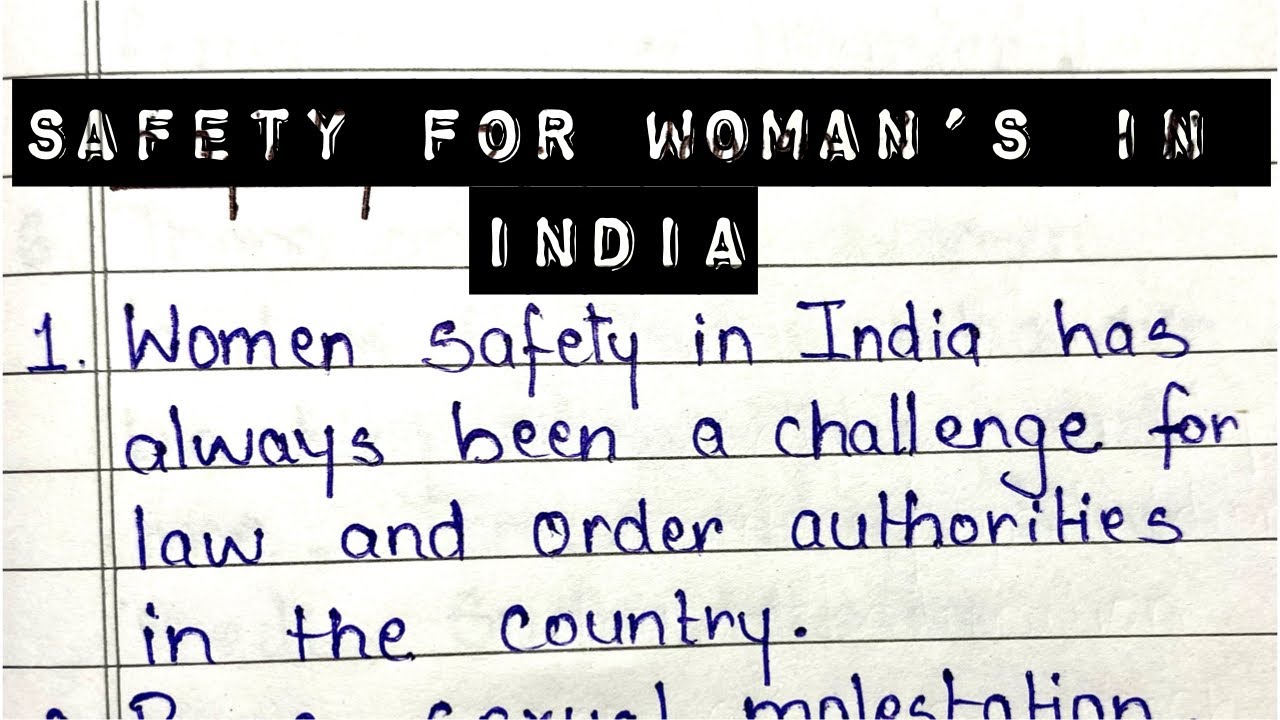 SAFETY FOR WOMAN'S IN
INDIA
1. Women safety in India has
always been a challenge for
law and order authorities
in the country.
sexual molestation